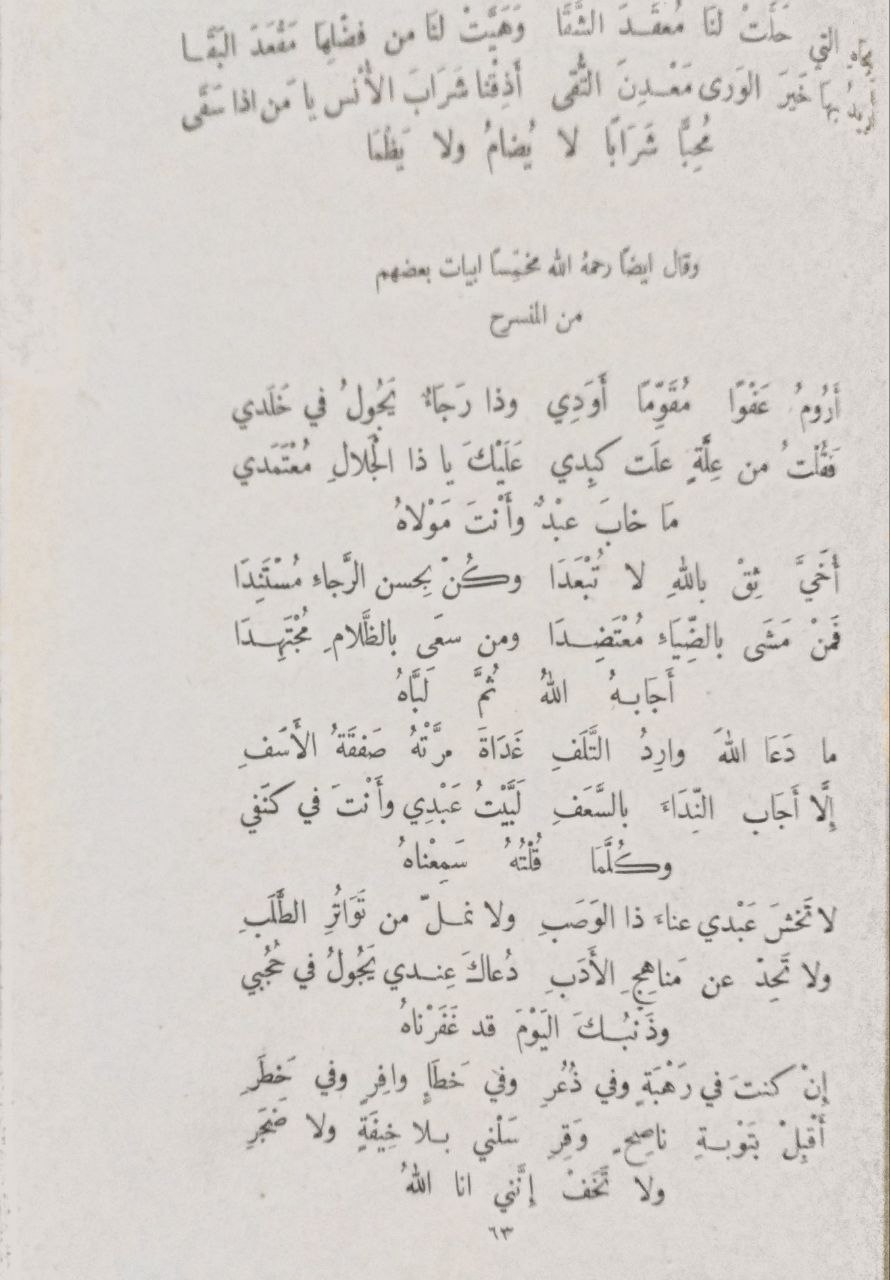 التي حَلَّتْ لنَا مُعقَدَ الشَّقَا وَهَيَّتْ لنَا من فضْلِهَا مَقْعَدَ البَقَا
بها خَيرَ الوَرى مَعْدِنَ التُّقَى أَذِقْنا شَرَابَ الأُنْس يا مَن اذا سَقَى
مُحِبًّا شَرَابًا لا يُضامُ ولا يَظْمَا
وقال ايضًا رحمهُ الله مخمِّسًا ابيات بعضهم
من المنسرح
أَرُومُ عَفْوًا مُقَوِّمًا أَوَدِي وذا رَجَاءٌ يَجُولُ في خَلَدي
فَقُلْتُ من عِلَّةٍ علَت كبِدي عَلَيْكَ يا ذا الْجَلالِ مُعْتَمَدي
مَا خابَ عبْدٌ وأَنْتَ مَوْلاهُ
أُخَيَّ ثِقْ باللهِ لا تُبْعَدَا وكُنْ بِحسن الرَّجاءِ مُسْتَنِدَا
فَمنْ مَشَى بالضِّيَاءِ مُعْتَضِدَا ومن سعَى بالظَّلامِ مُجْتَهِدَا
أَجَابهُ اللهُ ثُمَّ لَبَّاهُ
ما دَعَا اللهَ وارِدُ التَّلَفِ غَدَاةَ مرَّتْهُ صَفقَةُ الأَسَفِ
إِلَّا أَجَاب النِّدَاءَ بالسَّعَفِ لَبَّيْتُ عَبْدِي وأَنْتَ في كنَفي
وكُلَّمَا قُلْتُهُ سَمِعْناهُ
لا تَخْشَ عَبْدي عناءَ ذا الوَصَبِ ولا تملّ من تَوَاتُرِ الطَّلَبِ
ولا تَحِدْ عن مَناهِجِ الأَدَبِ دُعاكَ عِندي يَجُولُ في حُجُبي
وذَنْبُكَ اليَوْمَ قد غَفَرْناهُ
إِنْ كنتَ في رَهْبَةٍ وفي ذُعُرِ وفي خَطَإٍ وافِرٍ وفي خَطَرِ
أَقْبِلْ بتَوْبةِ ناصِحٍ وَقِرِ سَلْني بلا خِيفَةٍ ولا ضَجَرِ
ولا تَخَفْ إِنَّني انا اللهُ
٦٣